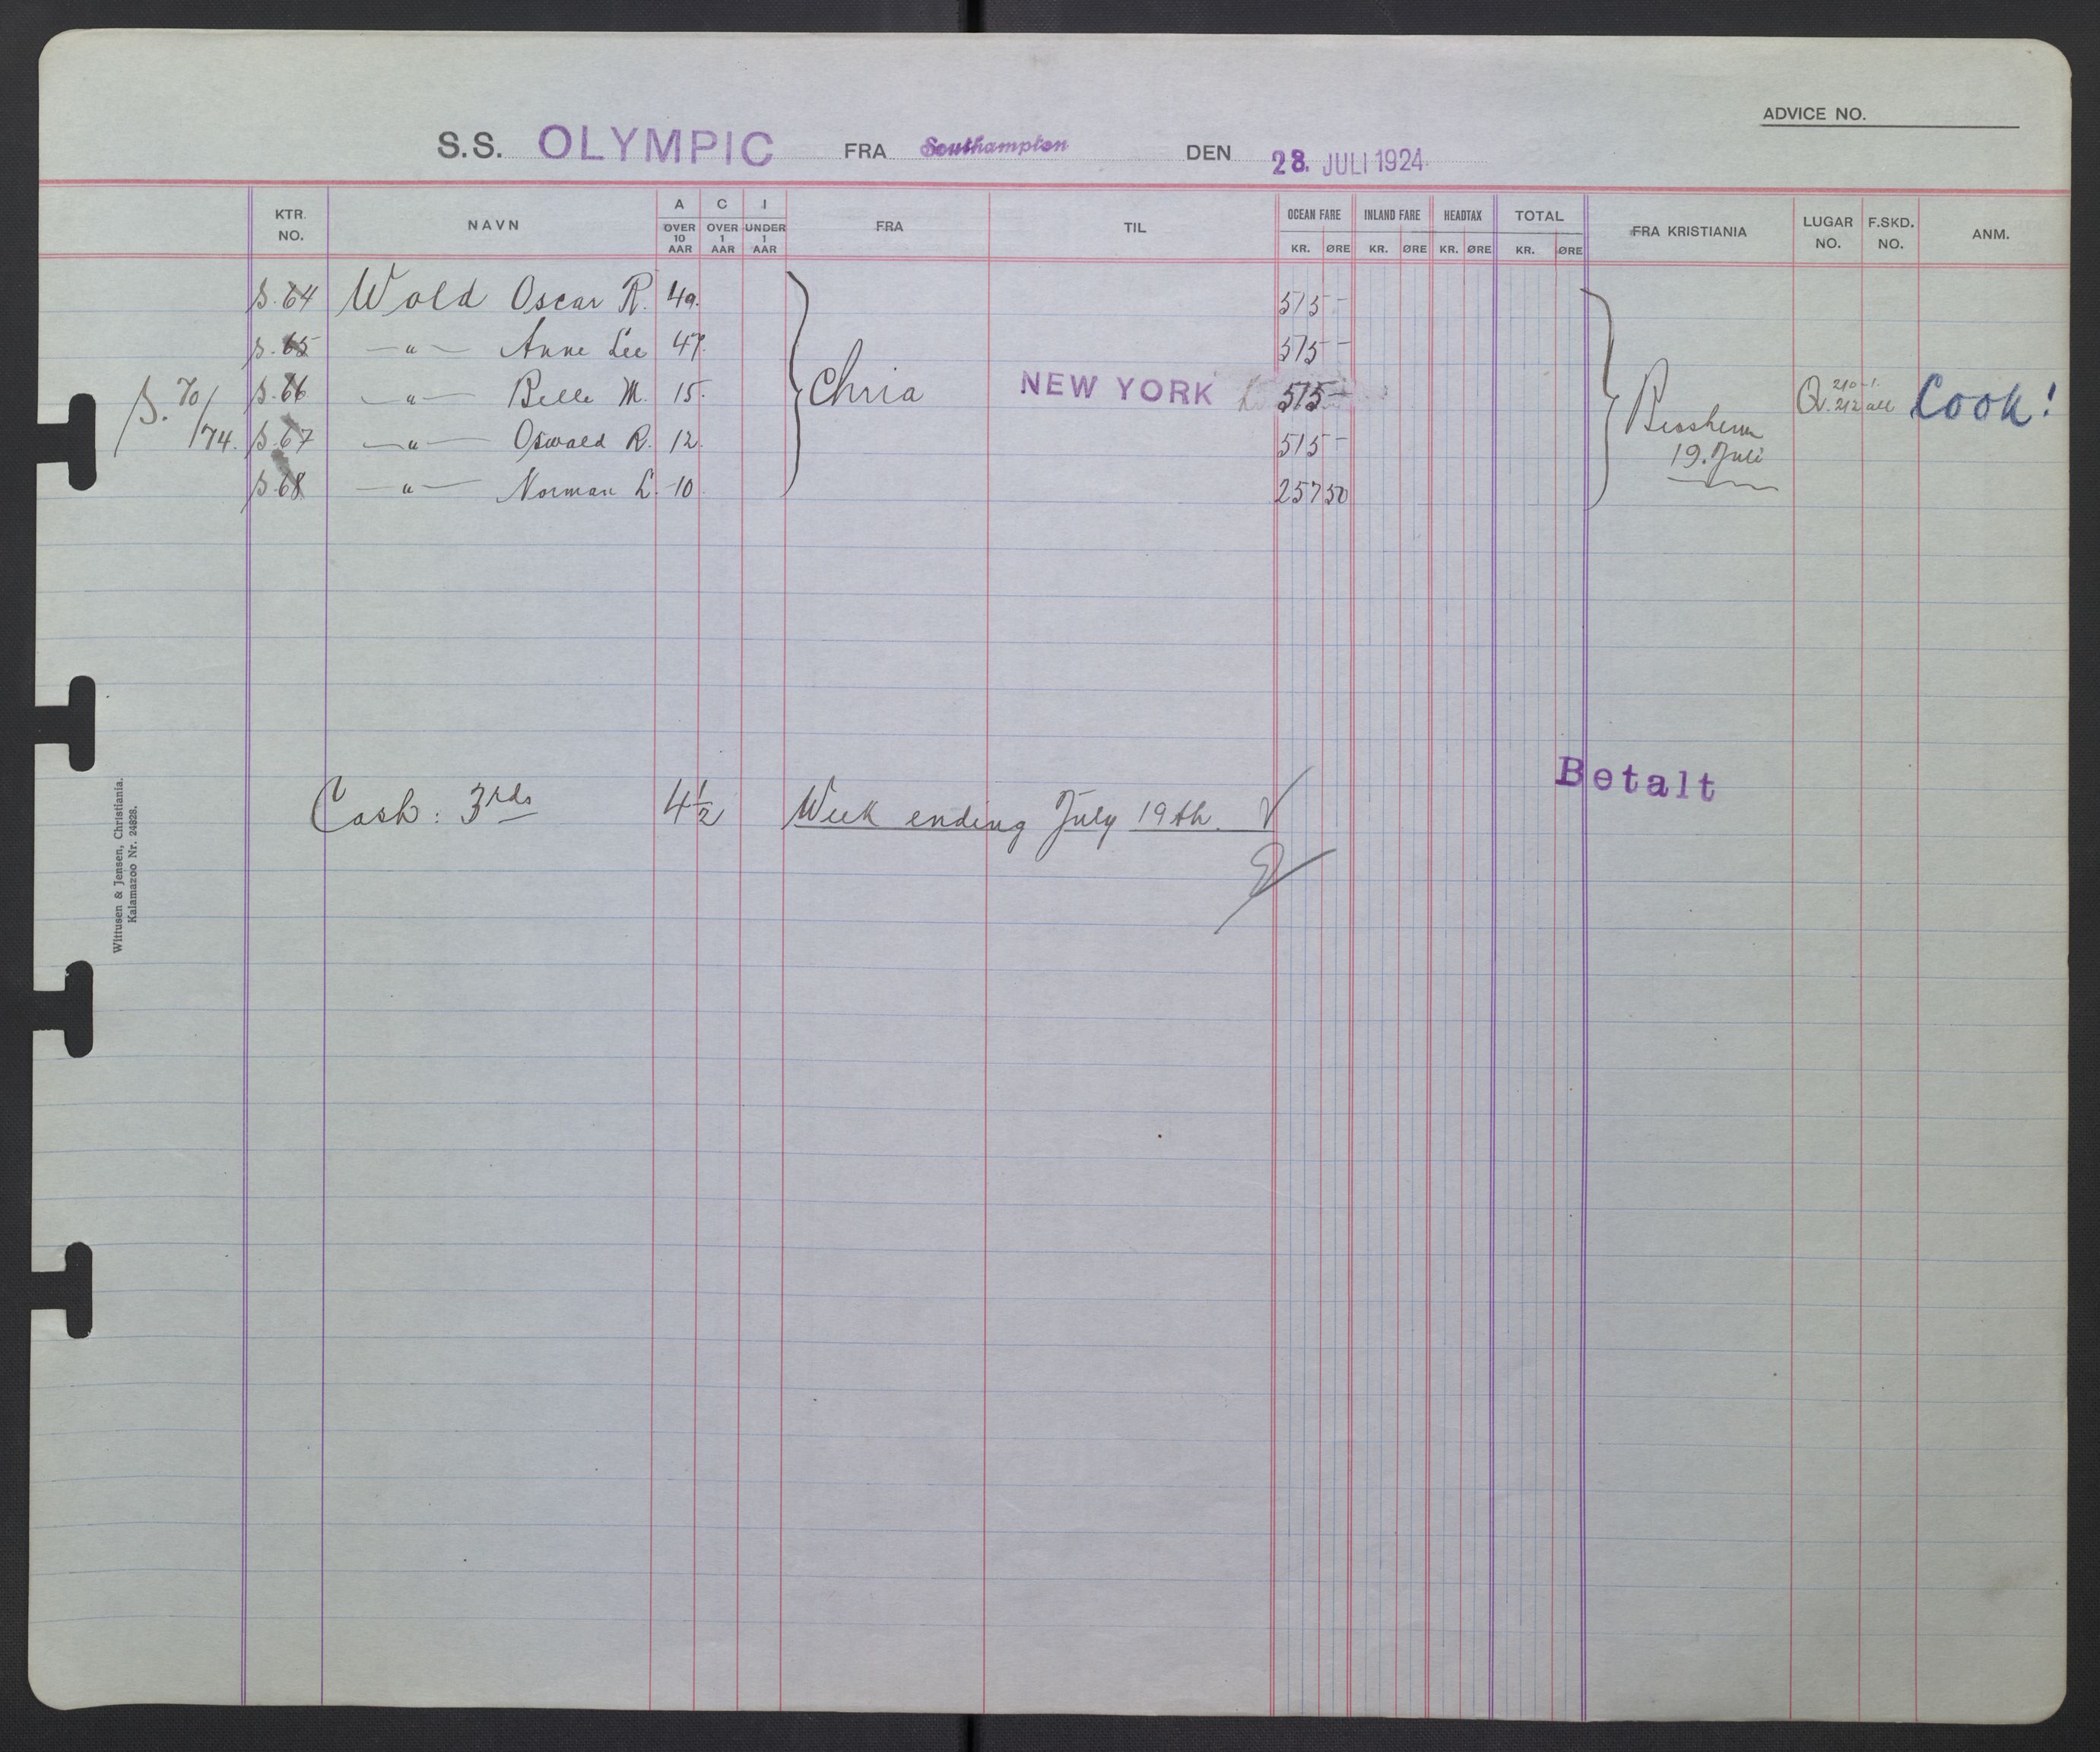 ADVICE NO.
S.S. OLYMPIC FRA Southampton DEN 28. JULI 1924
KTR. NO. NAVN A OVER 10 AAR C OVER 1 AAR I UNDER 1 AAR FRA TIL OCEAN FARE KR. ØRE INLAND FARE KR. ØRE HEADTAX KR. ØRE TOTAL KR. ØRE FRA KRISTIANIA LUGAR NO. F.SKD. NO. ANM.
S. 64 Wold Oscar R. 49. 515 -
S. 65 — " — Anne Lee 47. 515 -
S. 70/74. S. 66 — " — Belle M. 15. Chria NEW YORK 515 - Q. 210-1. 212 all Cook!
S. 67 — " — Oswald R. 12. 515 -
19. Juli
S. 68 — " — Norman L. 10 257 50
Betalt
Cash: 3rds 4 1/2 Week ending July 19th. V
Wittusen & Jensen, Christiania.
Kalamazoo Nr. 24828.